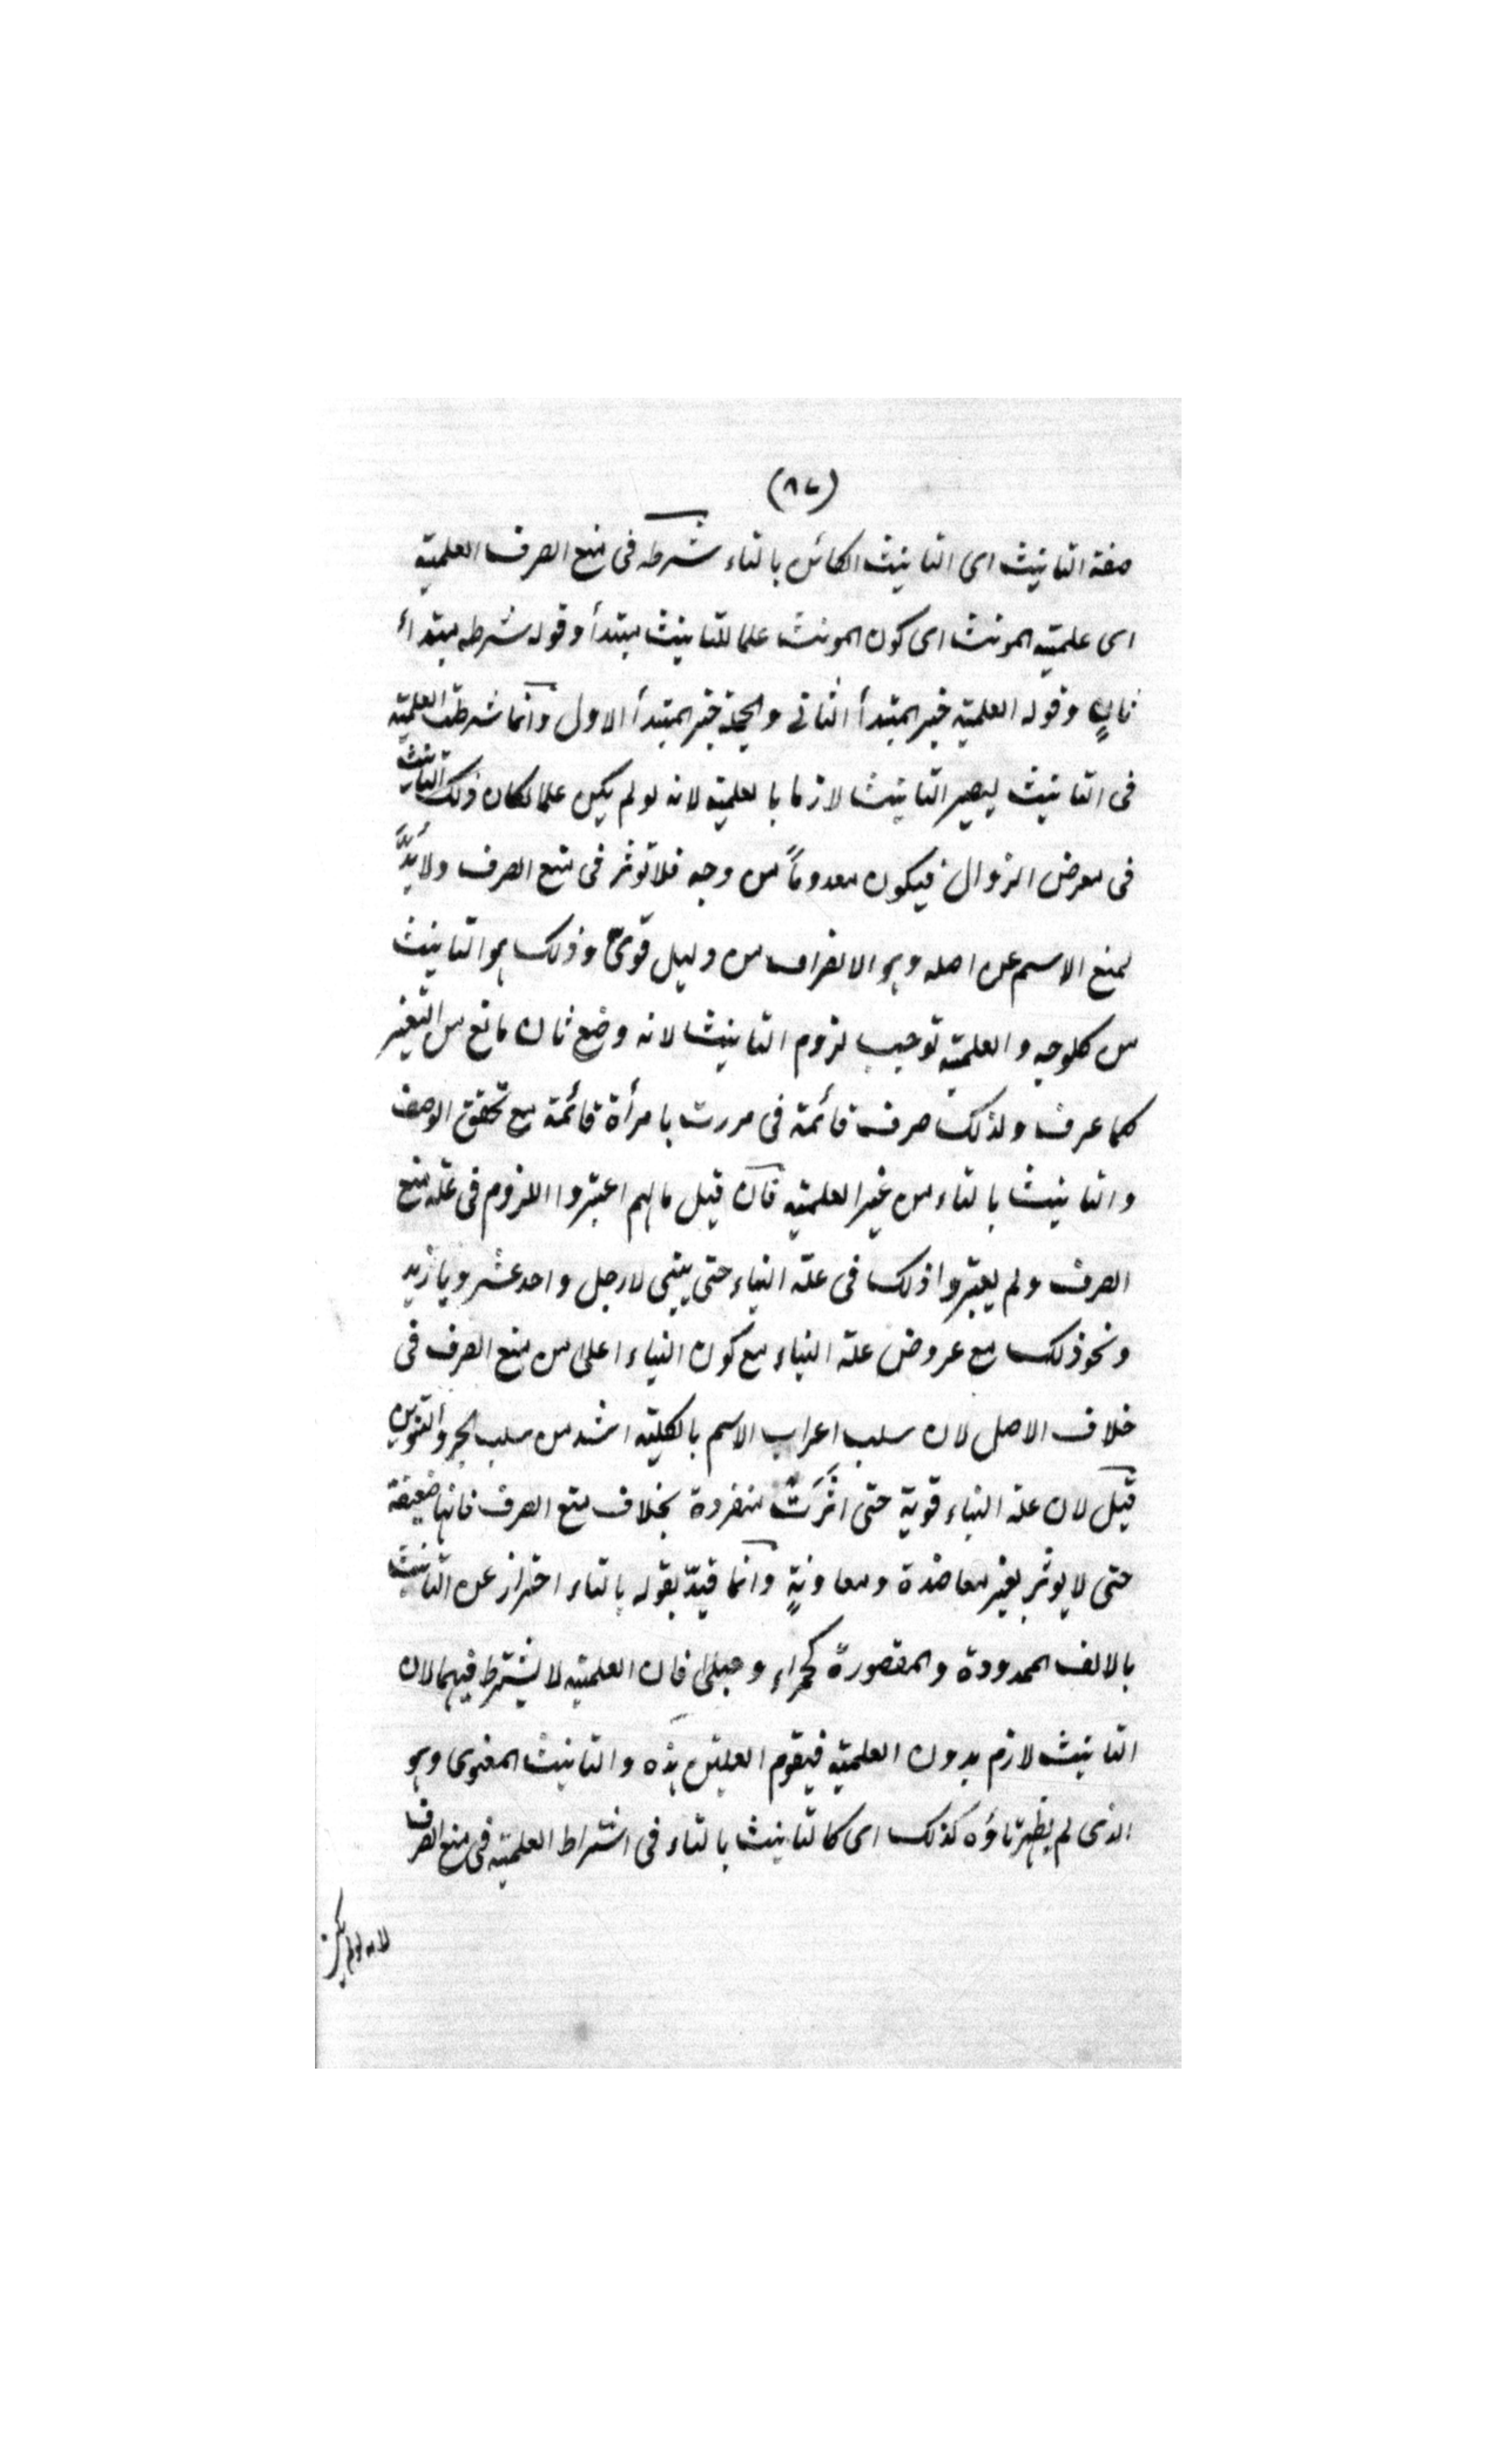 (٨٧)
صفة التانيث اى التانيث الكائن بالتاء شرطه فى منع الصرف العلمية
اى علمية المونث اى كون المونث علما للتانيث مبتدأ وقوله شرطه مبتدأ
ثانٍ وقوله العلمية خبر المبتدأ الثانى والجملة خبر المبتدأ الاول وانما شرطت العلمية
فى التانيث ليصير التانيث لازما بالعلمية لانه لو لم يكن علما لكان ذلك التانيث
فى معرض الزوال فيكون معدوماً من وجه فلا توثر فى منع الصرف ولا بدَّ
لمنع الاسم عن اصله وهو الانصراف من دليل قوىّ وذلك هو التانيث
من كلوجه والعلمية توجب لزوم التانيث لانه وضع ثان مانع من التغير
كما عرف ولذلك صرف قائمة فى مررت بامرأة قائمة مع تحقق الوصف
والتانيث بالتاء من غير العلمية فان قيل مالهم اعتبروا اللزوم فى علة منع
الصرف ولم يعتبروا ذلك فى علة البناء حتى يبنى لارجل واحد عشر ويا زيد
ونحو ذلك مع عروض علة البناء مع كون البناء اعلى من منع الصرف فى
خلاف الاصل لان سلب اعراب الاسم بالكلية اشد من سلب الجر والتنوين
قيل لان علة البناء قوية حتى اثرت منفردة بخلاف منع الصرف فانها ضعيفة
حتى لا يوثر بغير معاضدة ومعاونةٍ وانما قيدّ بقوله بالتاء احتراز عن التانيث
بالالف الممدودة والمقصورة كحمراء وحبلى فان العلمية لا يشترط فيهما لان
التانيث لازم بدون العلمية فيقوم العلتين هذه والتانيث المعنوى وهو
الذى لم يظهر تاؤه كذلك اى كالتانيث بالتاء فى اشتراط العلمية فى منع الصرف
لانه لو لم يكن